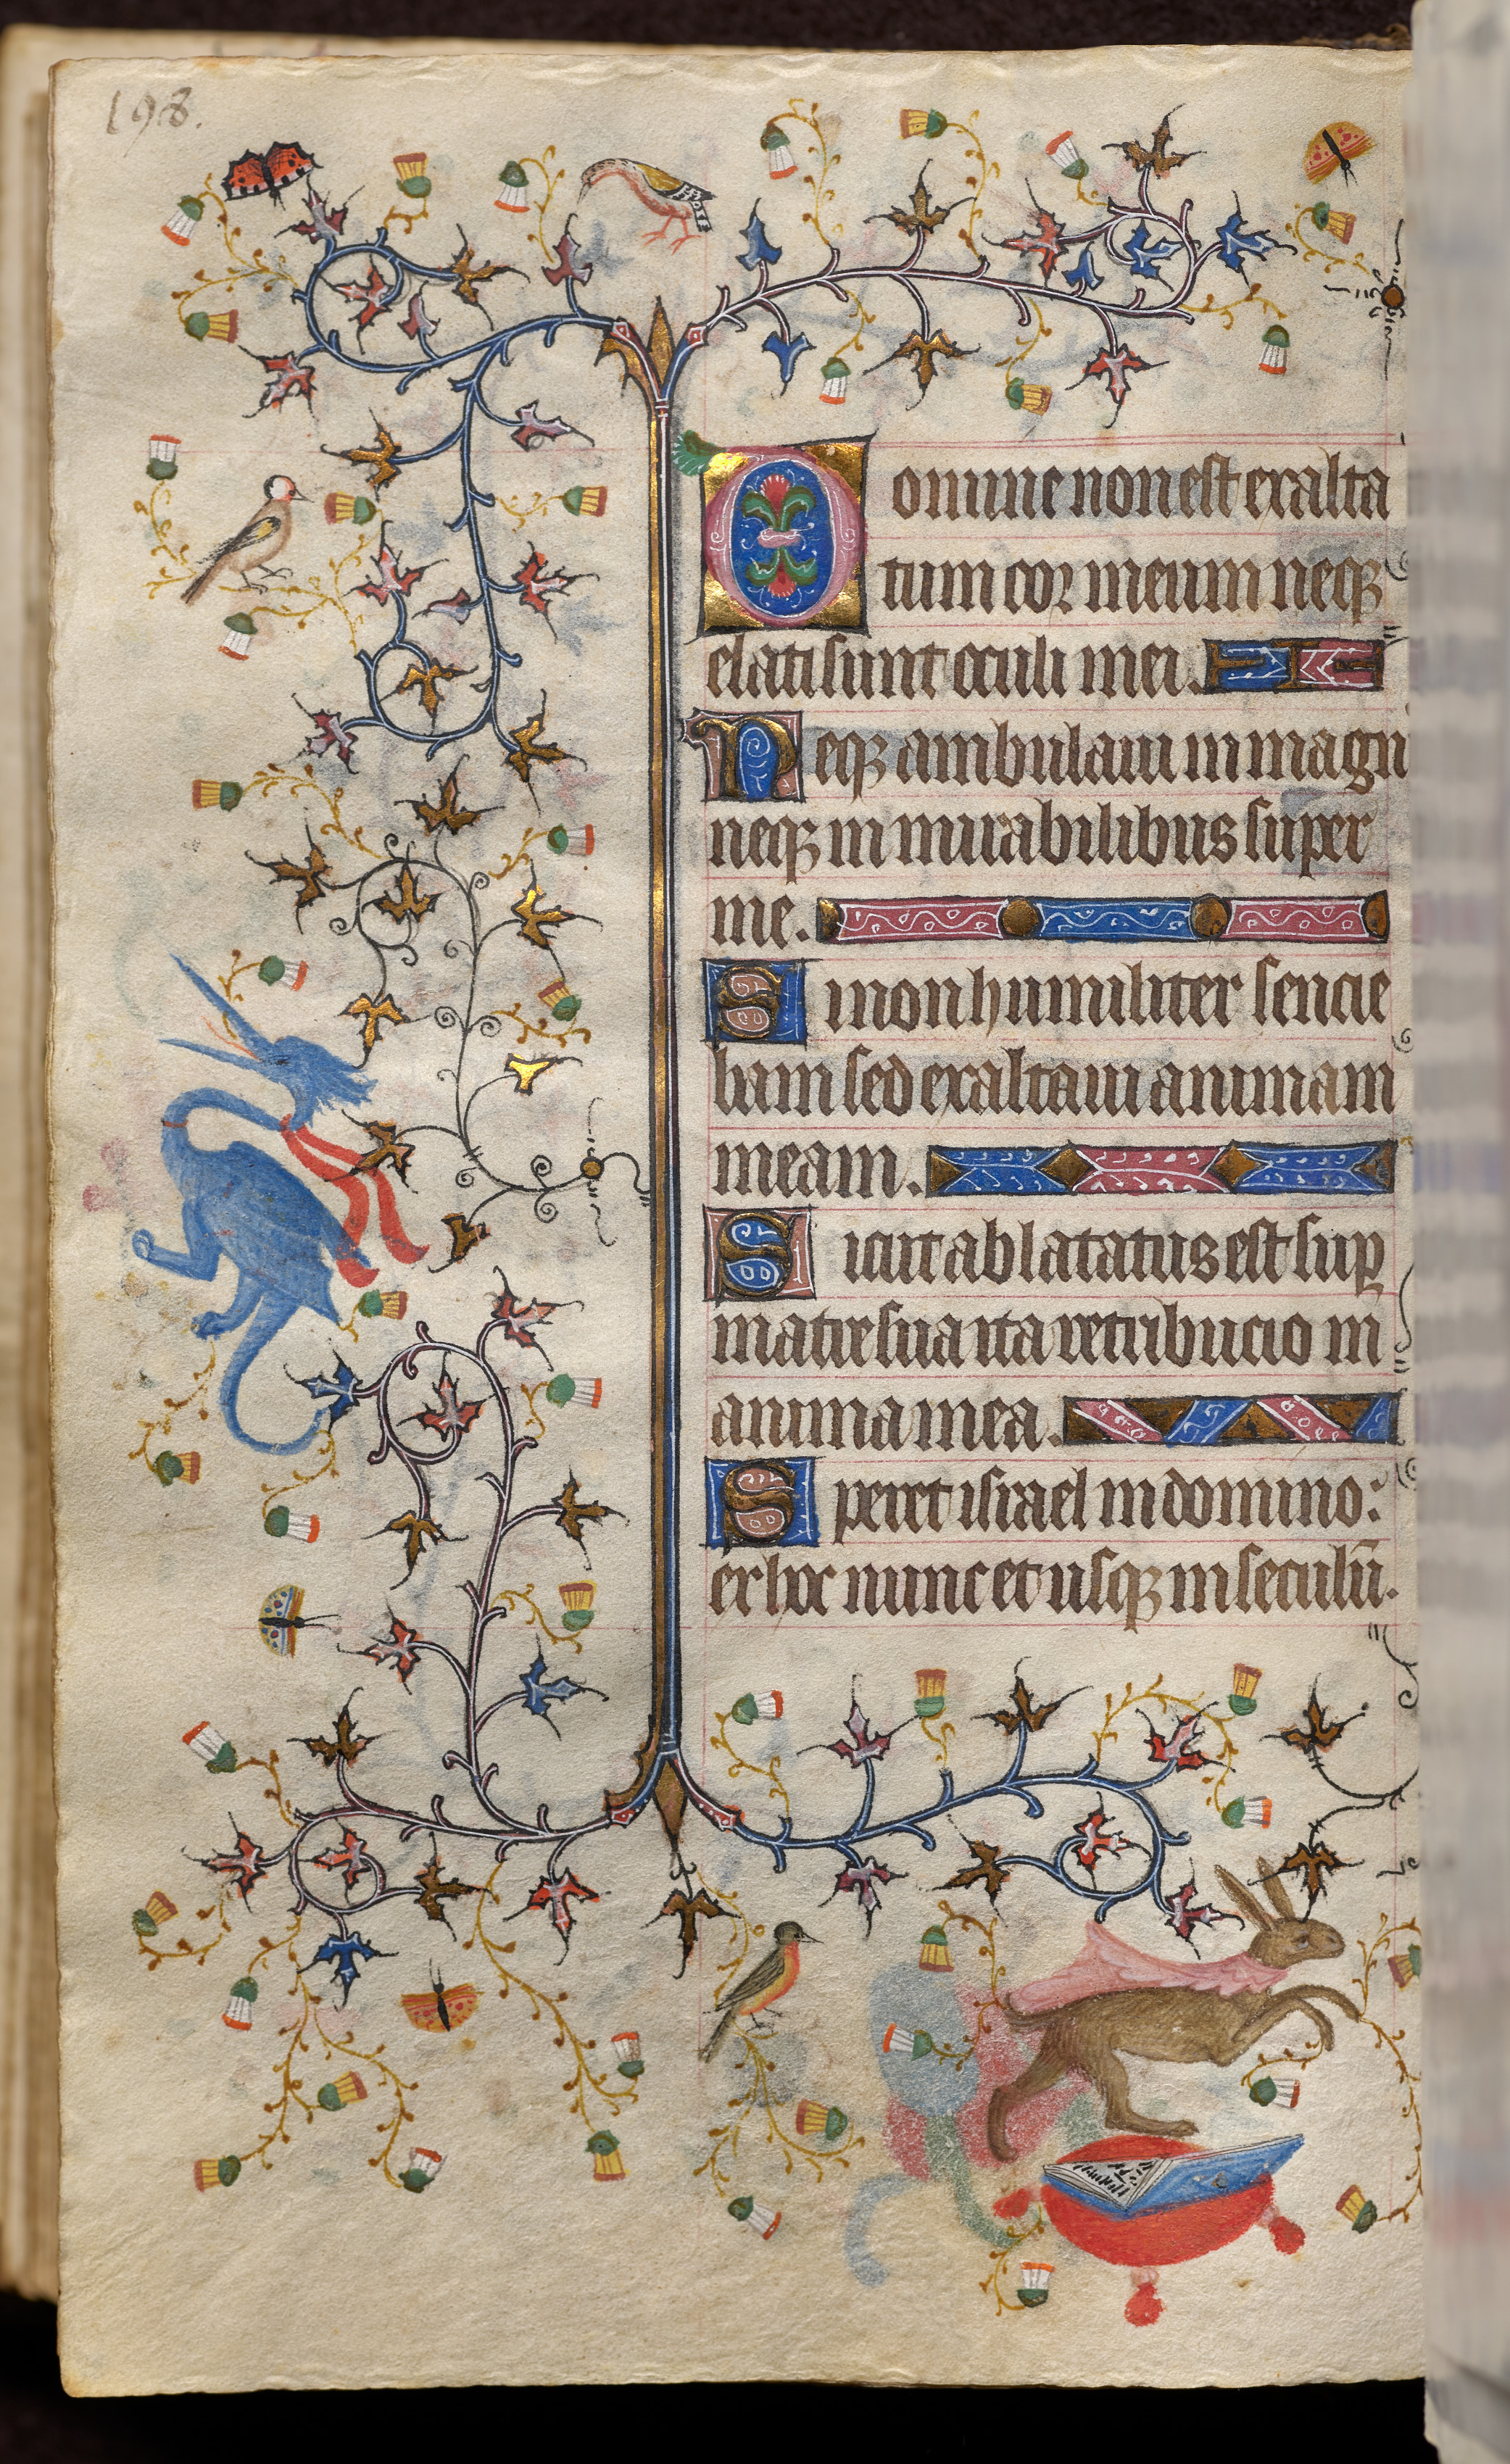 198.
Domine non est exalta
tum cor meum neqꝫ
elati sunt oculi mei.
Neqꝫ ambulaui in magn
neqꝫ in mirabilibus super
me.
Si non humiliter sencie
bam sed exaltaui animam
meam.
Sicut ablatatus est suꝑ
matre sua ita retribucio in
anima mea.
Speret israel in domino:
ex hoc nunc et usqꝫ in seculū.